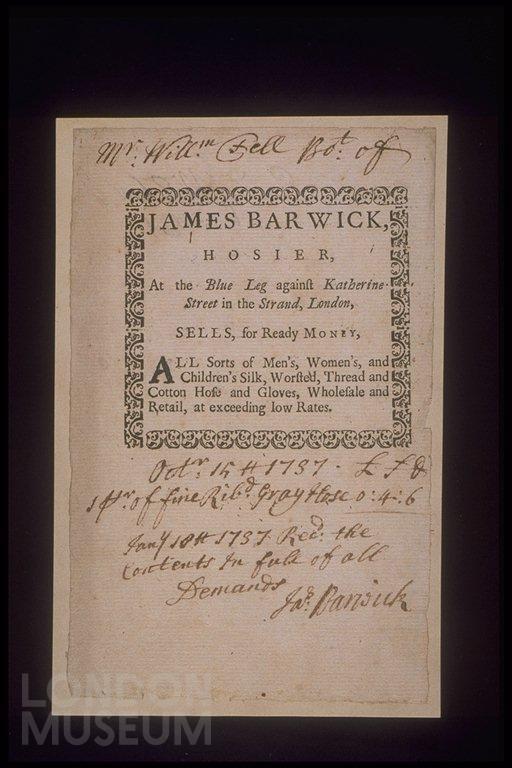 Mr. Will.m Fell Bot. of
JAMES BARWICK,
HOSIER,
At the Blue Leg againſt Katherine-
Street in the Strand, London,
SELLS, for Ready MONEY,
ALL Sorts of Men's, Women's, and
Children's Silk, Worſted, Thread and
Cotton Hoſe and Gloves, Wholeſale and
Retail, at exceeding low Rates.
Octr. 15th 1737 - £ s d
1 pr. of fine Ribd. Gray Hose 0:4:6
Jany 18th 1737 Recd. the
Contents In full of all
Demands
Jas. Barwick
LONDON
MUSEUM